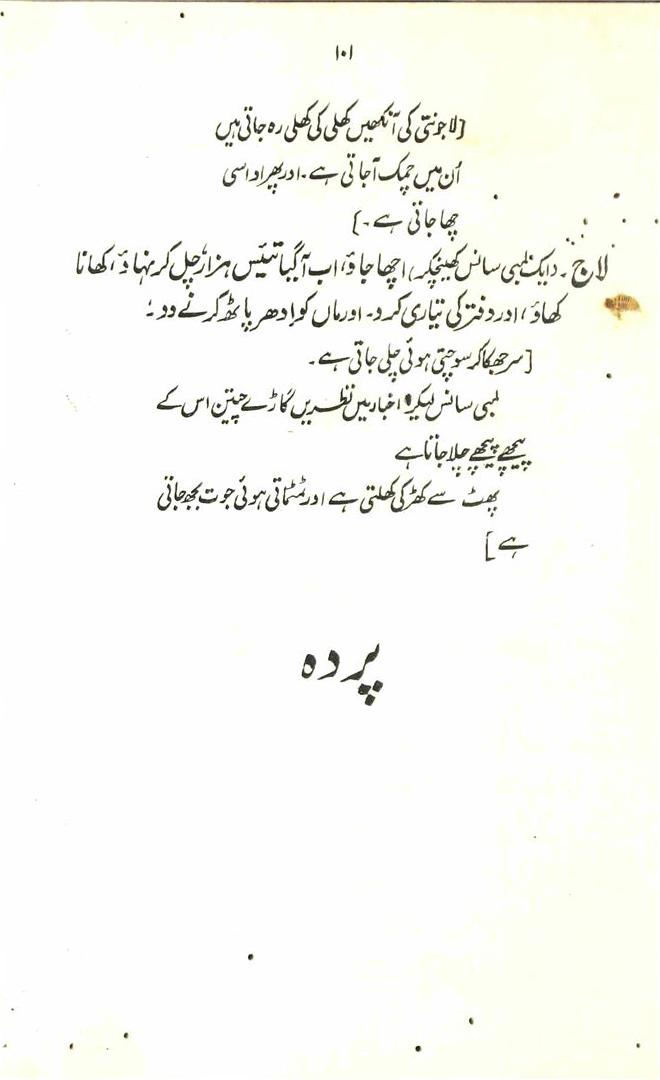 ۱۰۱
[لاجونتی کی آنکھیں کھلی کی کھلی رہ جاتی ہیں
اُن میں چمک آجاتی ہے۔ اور پھر اداسی
چھا جاتی ہے۔]
لاج۔ (ایک لمبی سانس کھینچکر) اچھا جاؤ، اب آگیا تئیس ہزار، چل کر نہاؤ، کھانا
کھاؤ، اور دفتر کی تیاری کرو۔ اور ماں کو اِدھر پاٹھ کرنے دو۔
[سر جھکا کر سوچتی ہوئی چلی جاتی ہے۔
لمبی سانس لیکر، اخبار میں نظریں گاڑے چیتن اس کے
پیچھے پیچھے چلا جاتا ہے
پھٹ سے کھڑکی کھلتی ہے اور ٹمٹماتی ہوئی جوت بجھ جاتی
ہے]
پردہ